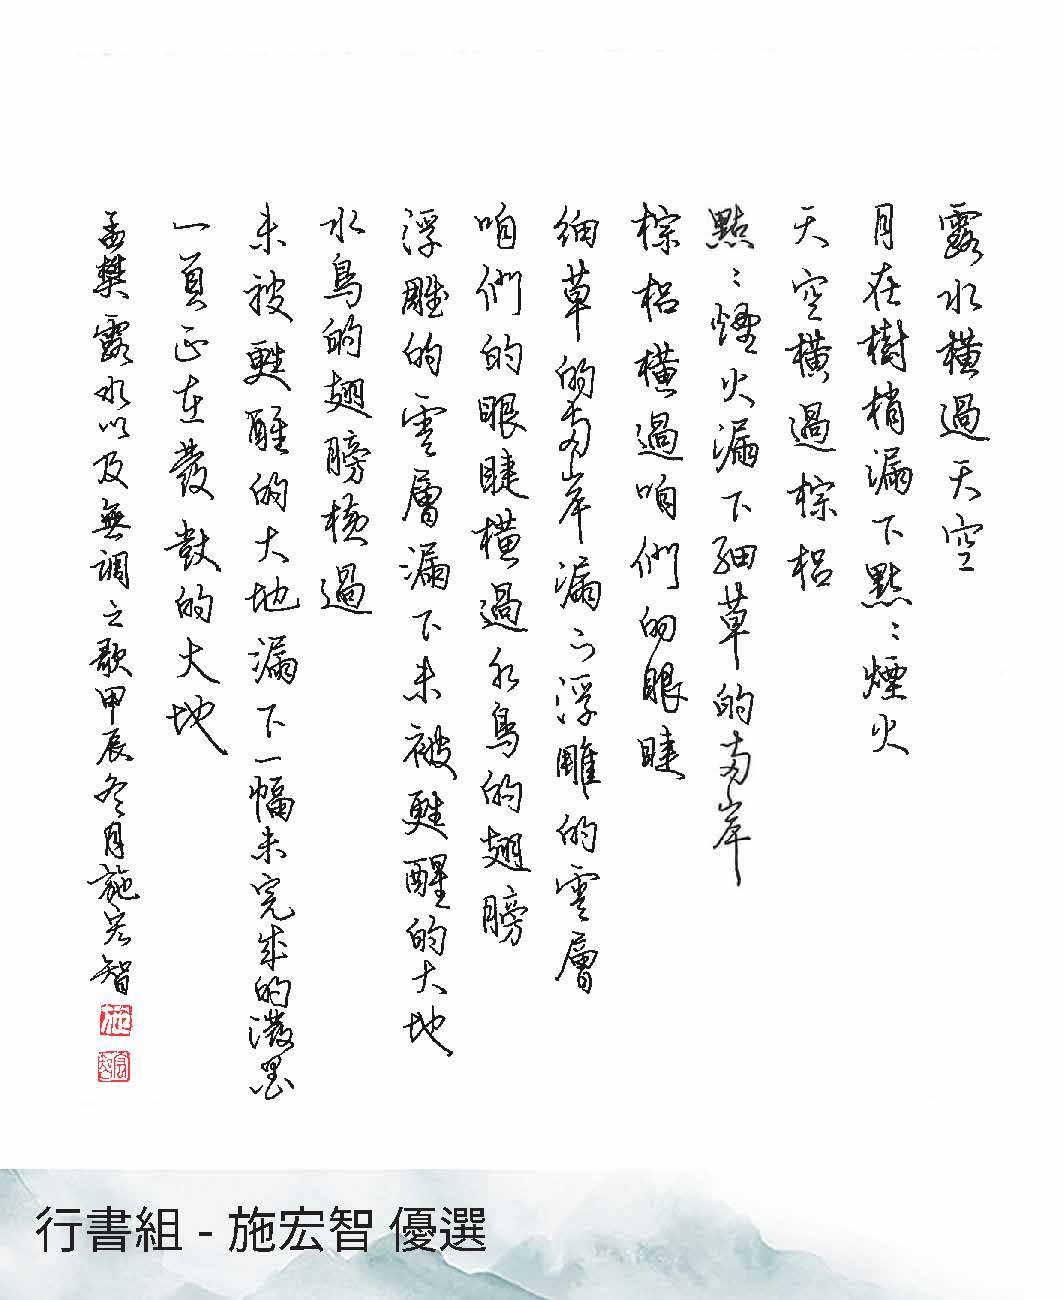 露水橫過天空
月在樹梢漏下點點煙火
天空橫過棕梠
點點煙火漏下細草的兩岸
棕梠橫過咱們的眼睫
細草的兩岸漏下浮雕的雲層
咱們的眼睫橫過水鳥的翅膀
浮雕的雲層漏下未被甦醒的大地
水鳥的翅膀橫過
未被甦醒的大地漏下一幅未完成的潑墨
一頁正在發皷的大地
孟樊露水以及無調之歌甲辰冬月施宏智
施
宏智
行書組 - 施宏智 優選